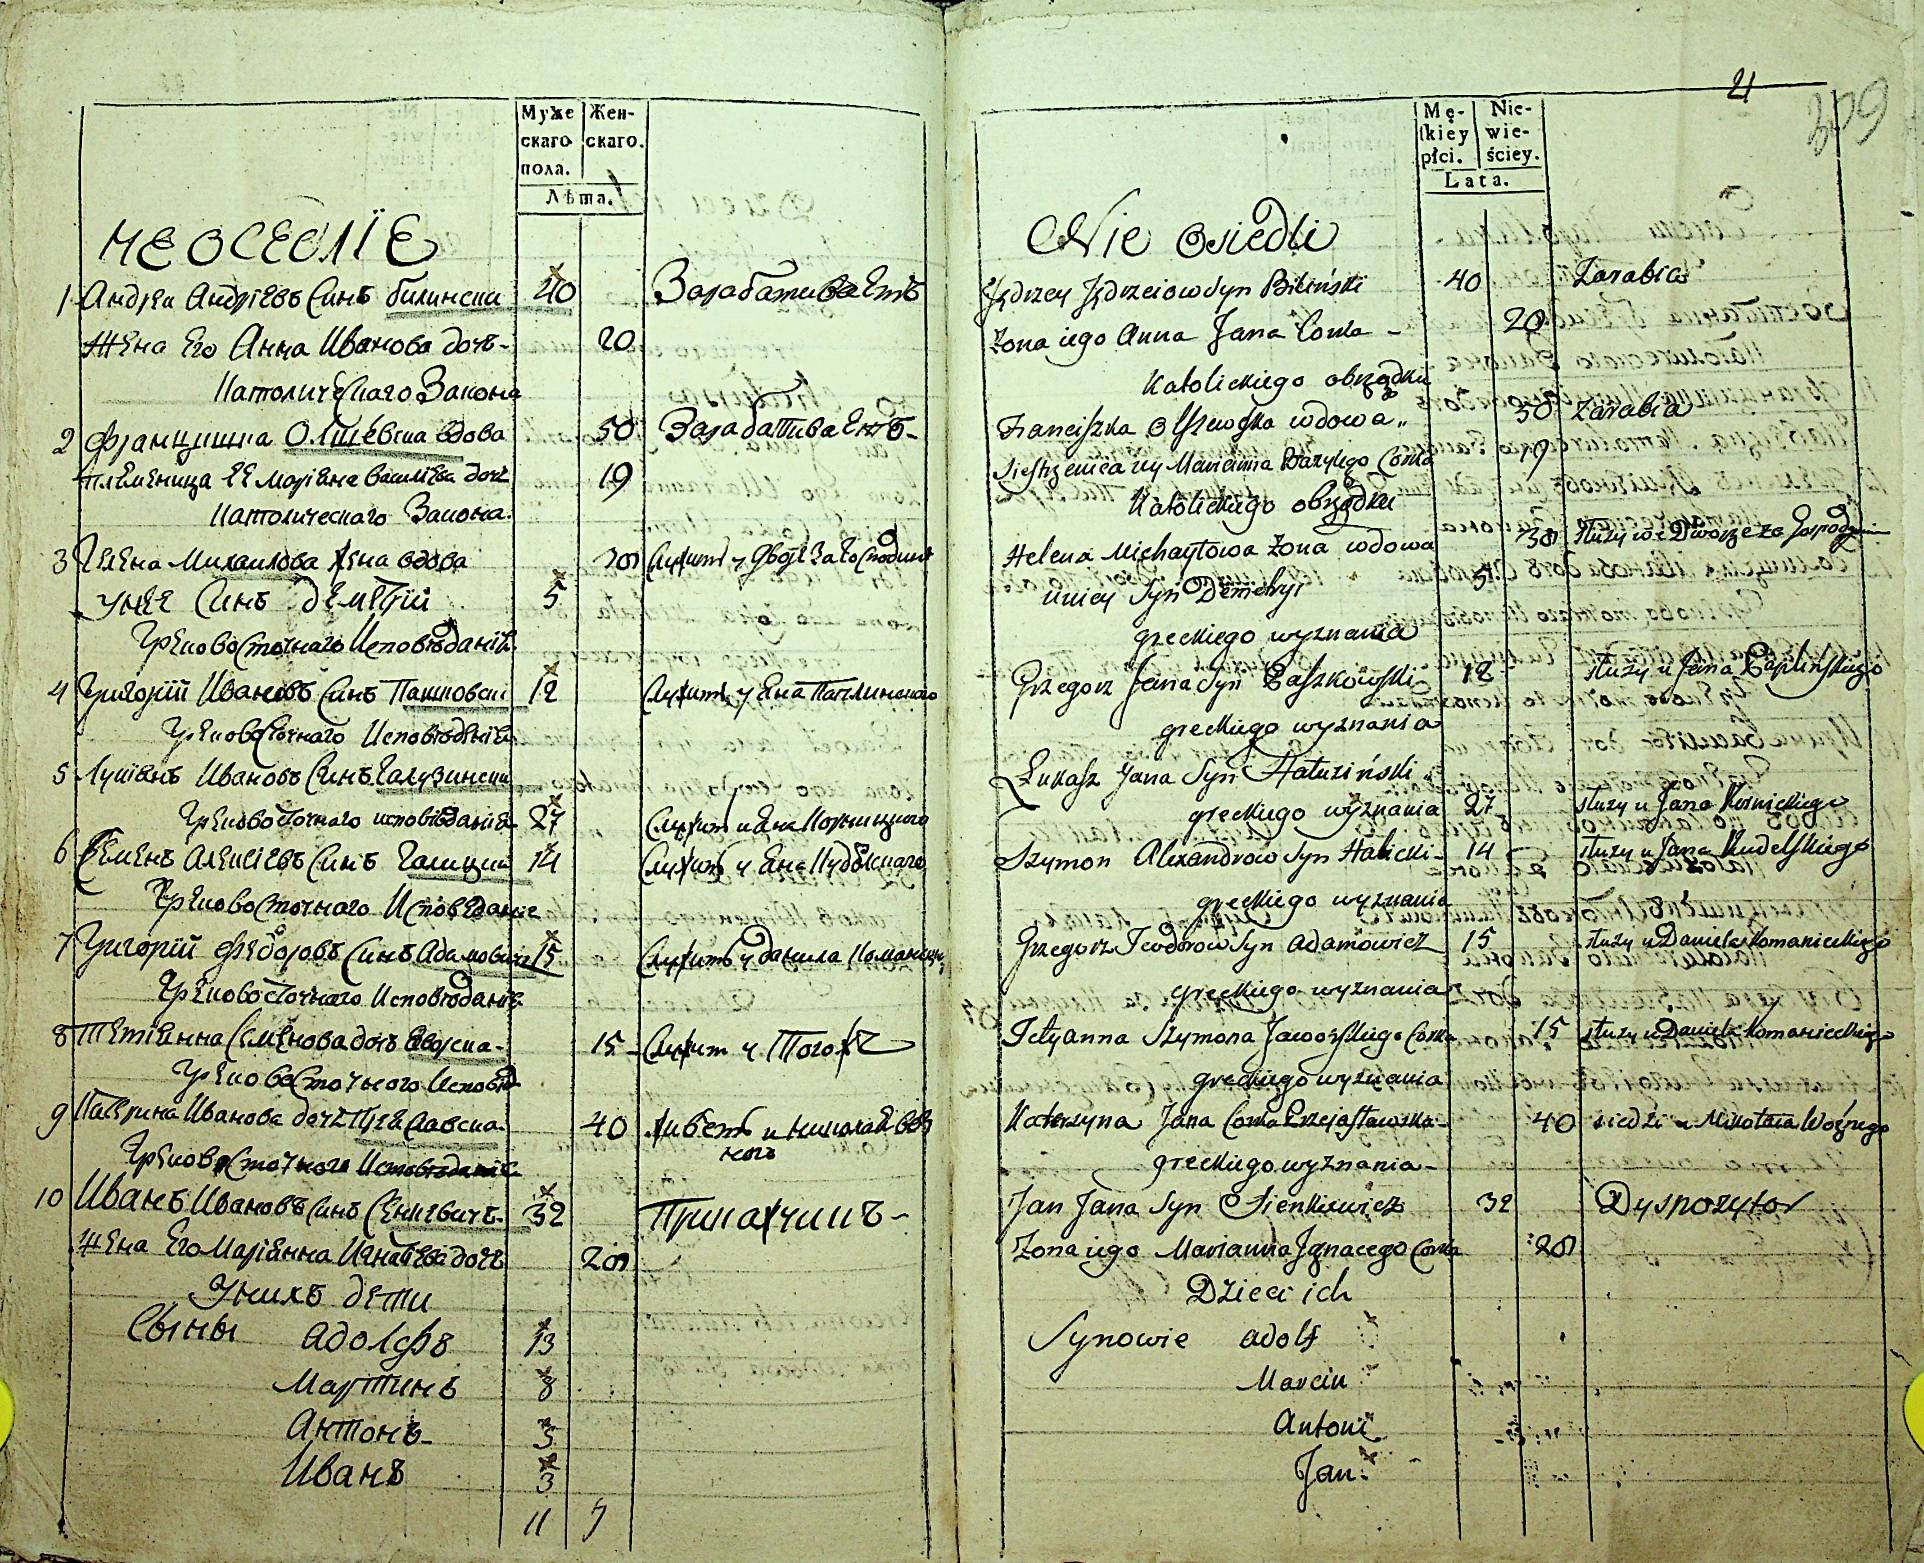 Муже Жен-
скаго скаго.
пола.
Лѣта.
НЕОСЕОЛІЕ
1 Андреи Андріевъ Синъ Билински 40 Зарабативаетъ
Жена Его Анна Иванова дочъ- 20
Католическаго Закона
2 Францишка Олшевска вдова 50 Зарабативаетъ-
племеница ЕЕ Маріяна василіева дочъ 19
Католическаго Закона.
3 Гелена Михаилова жена вдова 30 Служитъ у дворе За Господиню
унее Синъ Деметрій 5
Грековосточнаго Исповѣданія
4 Григорій Ивановъ Синъ Пашковски 12 Служитъ у Яна Паплинскаго
Грековосточнаго Исповѣданія
5 Лукіянъ Ивановъ Синъ Галузински
Грековосточнаго исповѣданія 27 Служитъ у Яна
6 Семенъ Алексіевъ Синъ Галицки 14 Служитъ у Яна Кудѣлскаго
Грековосточнаго Исповеданіе
7 Григорій Федоровъ Синъ Адамовичъ 15 Служитъ у данила
Грековосточнаго Исповѣданіе
8 Тетіянна Семенова дочъ Яворска- 15- Служит у Тогожъ
Грековосточного Исповѣд
9 Катерина Иванова дочъ Пржеславска- 40 живетъ у николая Воз
ного
Грековосточного Исповѣданіе
10 Иванъ Ивановъ Синъ Сенкевичъ- 32 Прикажчикъ-
Жена Его Маріянна Игнатіева дочъ 20
Унихъ дети
Сыны Адолфъ 13
Мартинъ 8
Антонъ- 5
Иванъ 3
11 9
21
309
Mę- Nie-
skiey wie-
płci. ściey.
Lata.
Nie Osiedli
Jędrzey Jędrzeiow Syn Biliński 40 Zarabia
Zona iego Anna Jana Corka - 20
Katolickiego obrządku
Franciszka Olszewska wdowa „ 50 Zarabia
Siestrzenica iey Marianna Bazylego Corka 19
Katolickiego obrządku
Helena Michayłowa Zona wdowa 30 służy we Dworze za Gospodynię
uniey Syn Demetryi 5
greckiego wyznania
Grzegorz Jana Syn Paszkowski 12 służy u Jana Paplińskiego
greckiego wyznania
Łukasz Jana Syn Hałuziński „
greckiego wyznania 27 służy u Jana
Szymon Alexandrow Syn Halicki- 14 służy u Jana Kudelskiego
greckiego wyznania
Grzegorz Teodorow Syn Adamowicz 15 służy u Daniela Komanieckiego
greckiego wyznania
Tetyanna Szymona Jaworskiego Corka 15 służy u Daniela Komanieckiego
greckiego wyznania
Katerzyna Jana Corka Przejasławska- 40 siedzi u Mikołaia Woźnego
greckiego wyznania-
Jan Jana Syn Sienkiewicz 32 Dyspozytor
Zona iego Marianna Jgnacego Corka 20
Dzieci ich
Synowie Adolf
Marcin
Antoni
Jan.